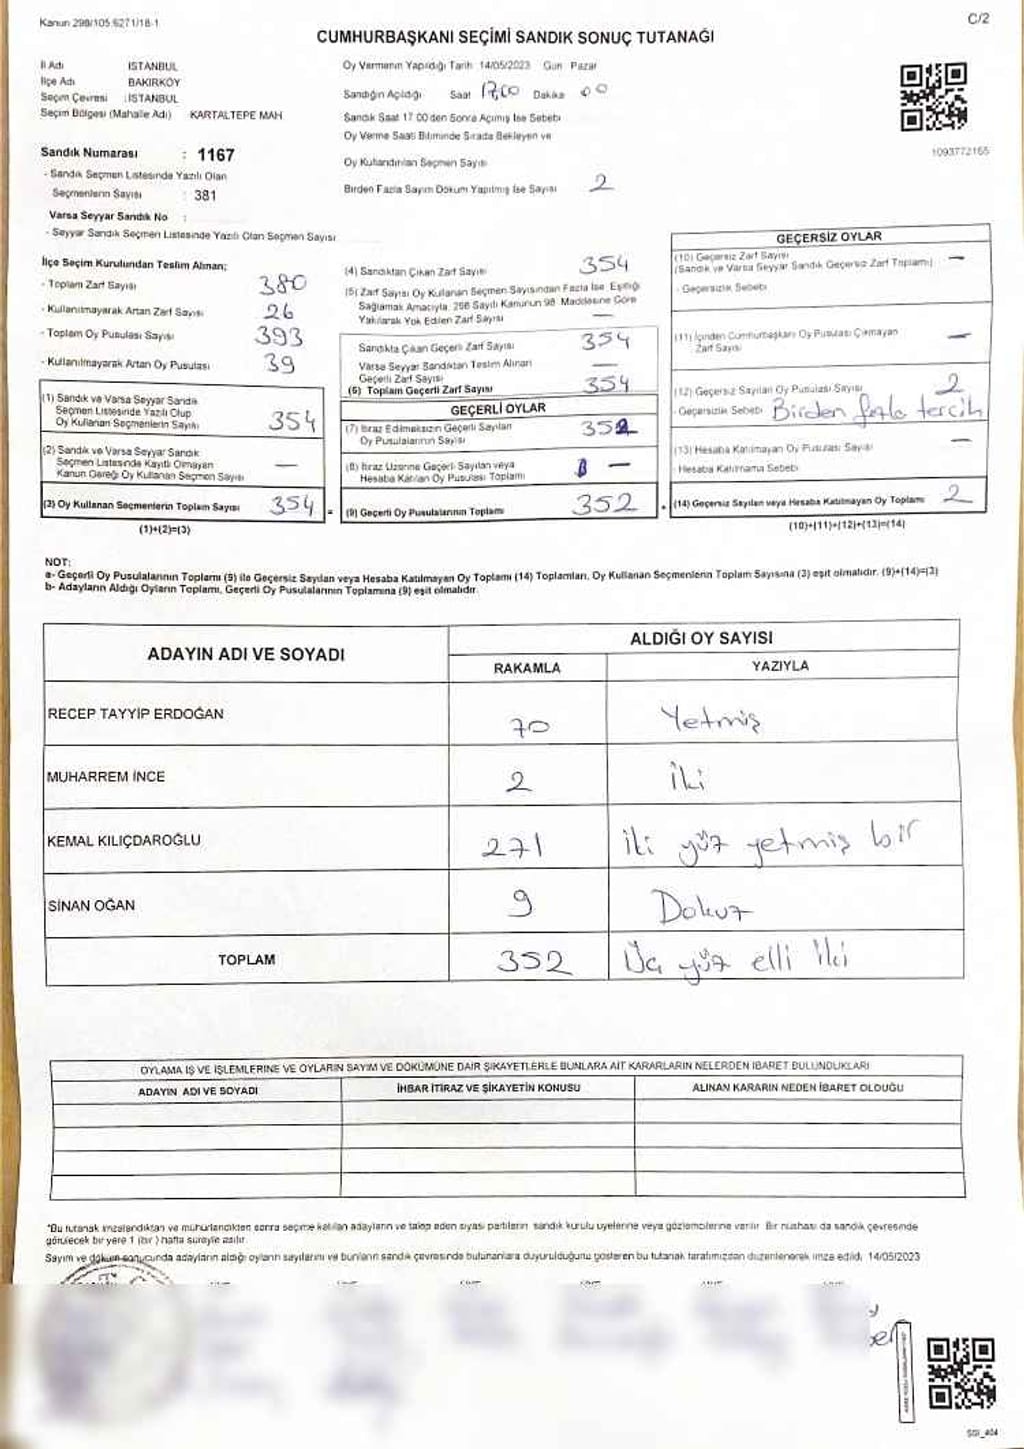 Kanun 298/105.6271/18-1
C/2
CUMHURBAŞKANI SEÇİMİ SANDIK SONUÇ TUTANAĞI
İl Adı İSTANBUL
İlçe Adı BAKIRKÖY
Seçim Çevresi : İSTANBUL
Seçim Bölgesi (Mahalle Adı) KARTALTEPE MAH
Sandık Numarası : 1167
- Sandık Seçmen Listesinde Yazılı Olan
Seçmenlerin Sayısı : 381
Varsa Seyyar Sandık No :
- Seyyar Sandık Seçmen Listesinde Yazılı Olan Seçmen Sayısı
Oy Vermenin Yapıldığı Tarih 14/05/2023 Gün Pazar
Sandığın Açıldığı Saat 17,00 Dakika 00
Sandık Saat 17 00 den Sonra Açımış İse Sebebi
Oy Verme Saati Bitiminde Sırada Bekleyen ve
Oy Kullandırılan Seçmen Sayısı
Birden Fazla Sayım Döküm Yapılmış İse Sayısı 2
1093772165
İlçe Seçim Kurulundan Teslim Alınan;
- Toplam Zarf Sayısı 380
- Kullanılmayarak Artan Zarf Sayısı 26
- Toplam Oy Pusulası Sayısı 393
- Kullanılmayarak Artan Oy Pusulası 39
(1) Sandık ve Varsa Seyyar Sandık
Seçmen Listesinde Yazılı Olup
Oy Kullanan Seçmenlerin Sayısı 354
(2) Sandık ve Varsa Seyyar Sandık
Seçmen Listesinde Kayıtlı Olmayan
Kanun Gereği Oy Kullanan Seçmen Sayısı —
(3) Oy Kullanan Seçmenlerin Toplam Sayısı 354 =
(1)+(2)=(3)
(4) Sandıktan Çıkan Zarf Sayısı 354
(5) Zarf Sayısı Oy Kullanan Seçmen Sayısından Fazla İse, Eşitliği
Sağlamak Amacıyla, 298 Sayılı Kanunun 98. Maddesine Göre
Yakılarak Yok Edilen Zarf Sayısı —
Sandıkta Çıkan Geçerli Zarf Sayısı 354
Varsa Seyyar Sandıktan Teslim Alınan
Geçerli Zarf Sayısı —
(6) Toplam Geçerli Zarf Sayısı 354
GEÇERLİ OYLAR
(7) İtiraz Edilmeksizin Geçerli Sayılan
Oy Pusulalarının Sayısı 352
(8) İtiraz Üzerine Geçerli Sayılan veya
Hesaba Katılan Oy Pusulası Toplamı —
(9) Geçerli Oy Pusulalarının Toplamı 352
GEÇERSİZ OYLAR
(10) Geçersiz Zarf Sayısı —
(Sandık ve Varsa Seyyar Sandık Geçersiz Zarf Toplamı)
- Geçersizlik Sebebi
(11) İçinden Cumhurbaşkanı Oy Pusulası Çıkmayan
Zarf Sayısı —
(12) Geçersiz Sayılan Oy Pusulası Sayısı 2
- Geçersizlik Sebebi Birden fazla tercih
(13) Hesaba Katılmayan Oy Pusulası Sayısı —
- Hesaba Katılmama Sebebi
(14) Geçersiz Sayılan veya Hesaba Katılmayan Oy Toplamı 2
(10)+(11)+(12)+(13)=(14)
NOT:
a- Geçerli Oy Pusulalarının Toplamı (9) ile Geçersiz Sayılan veya Hesaba Katılmayan Oy Toplamı (14) Toplamları, Oy Kullanan Seçmenlerin Toplam Sayısına (3) eşit olmalıdır. (9)+(14)=(3)
b- Adayların Aldığı Oyların Toplamı, Geçerli Oy Pusulalarının Toplamına (9) eşit olmalıdır.
ADAYIN ADI VE SOYADI
ALDIĞI OY SAYISI
RAKAMLA YAZIYLA
RECEP TAYYİP ERDOĞAN 70 Yetmiş
MUHARREM İNCE 2 İki
KEMAL KILIÇDAROĞLU 271 iki yüz yetmiş bir
SİNAN OĞAN 9 Dokuz
TOPLAM 352 Üç yüz elli iki
OYLAMA İŞ VE İŞLEMLERİNE VE OYLARIN SAYIM VE DÖKÜMÜNE DAİR ŞİKAYETLERLE BUNLARA AİT KARARLARIN NELERDEN İBARET BULUNDUKLARI
ADAYIN ADI VE SOYADI İHBAR İTİRAZ VE ŞİKAYETİN KONUSU ALINAN KARARIN NEDEN İBARET OLDUĞU
*Bu tutanak imzalandıktan ve mühürlendikten sonra seçime katılan adayların ve talep eden siyasi partilerin sandık kurulu üyelerine veya gözlemcilerine verilir. Bir nüshası da sandık çevresinde
görülecek bir yere 1 (bir ) hafta süreyle asılır.
Sayım ve döküm sonucunda adayların aldığı oyların sayılarını ve bunların sandık çevresinde bulunanlara duyurulduğunu gösteren bu tutanak tarafımızdan düzenlenerek imza edildi. 14/05/2023
SGI_404